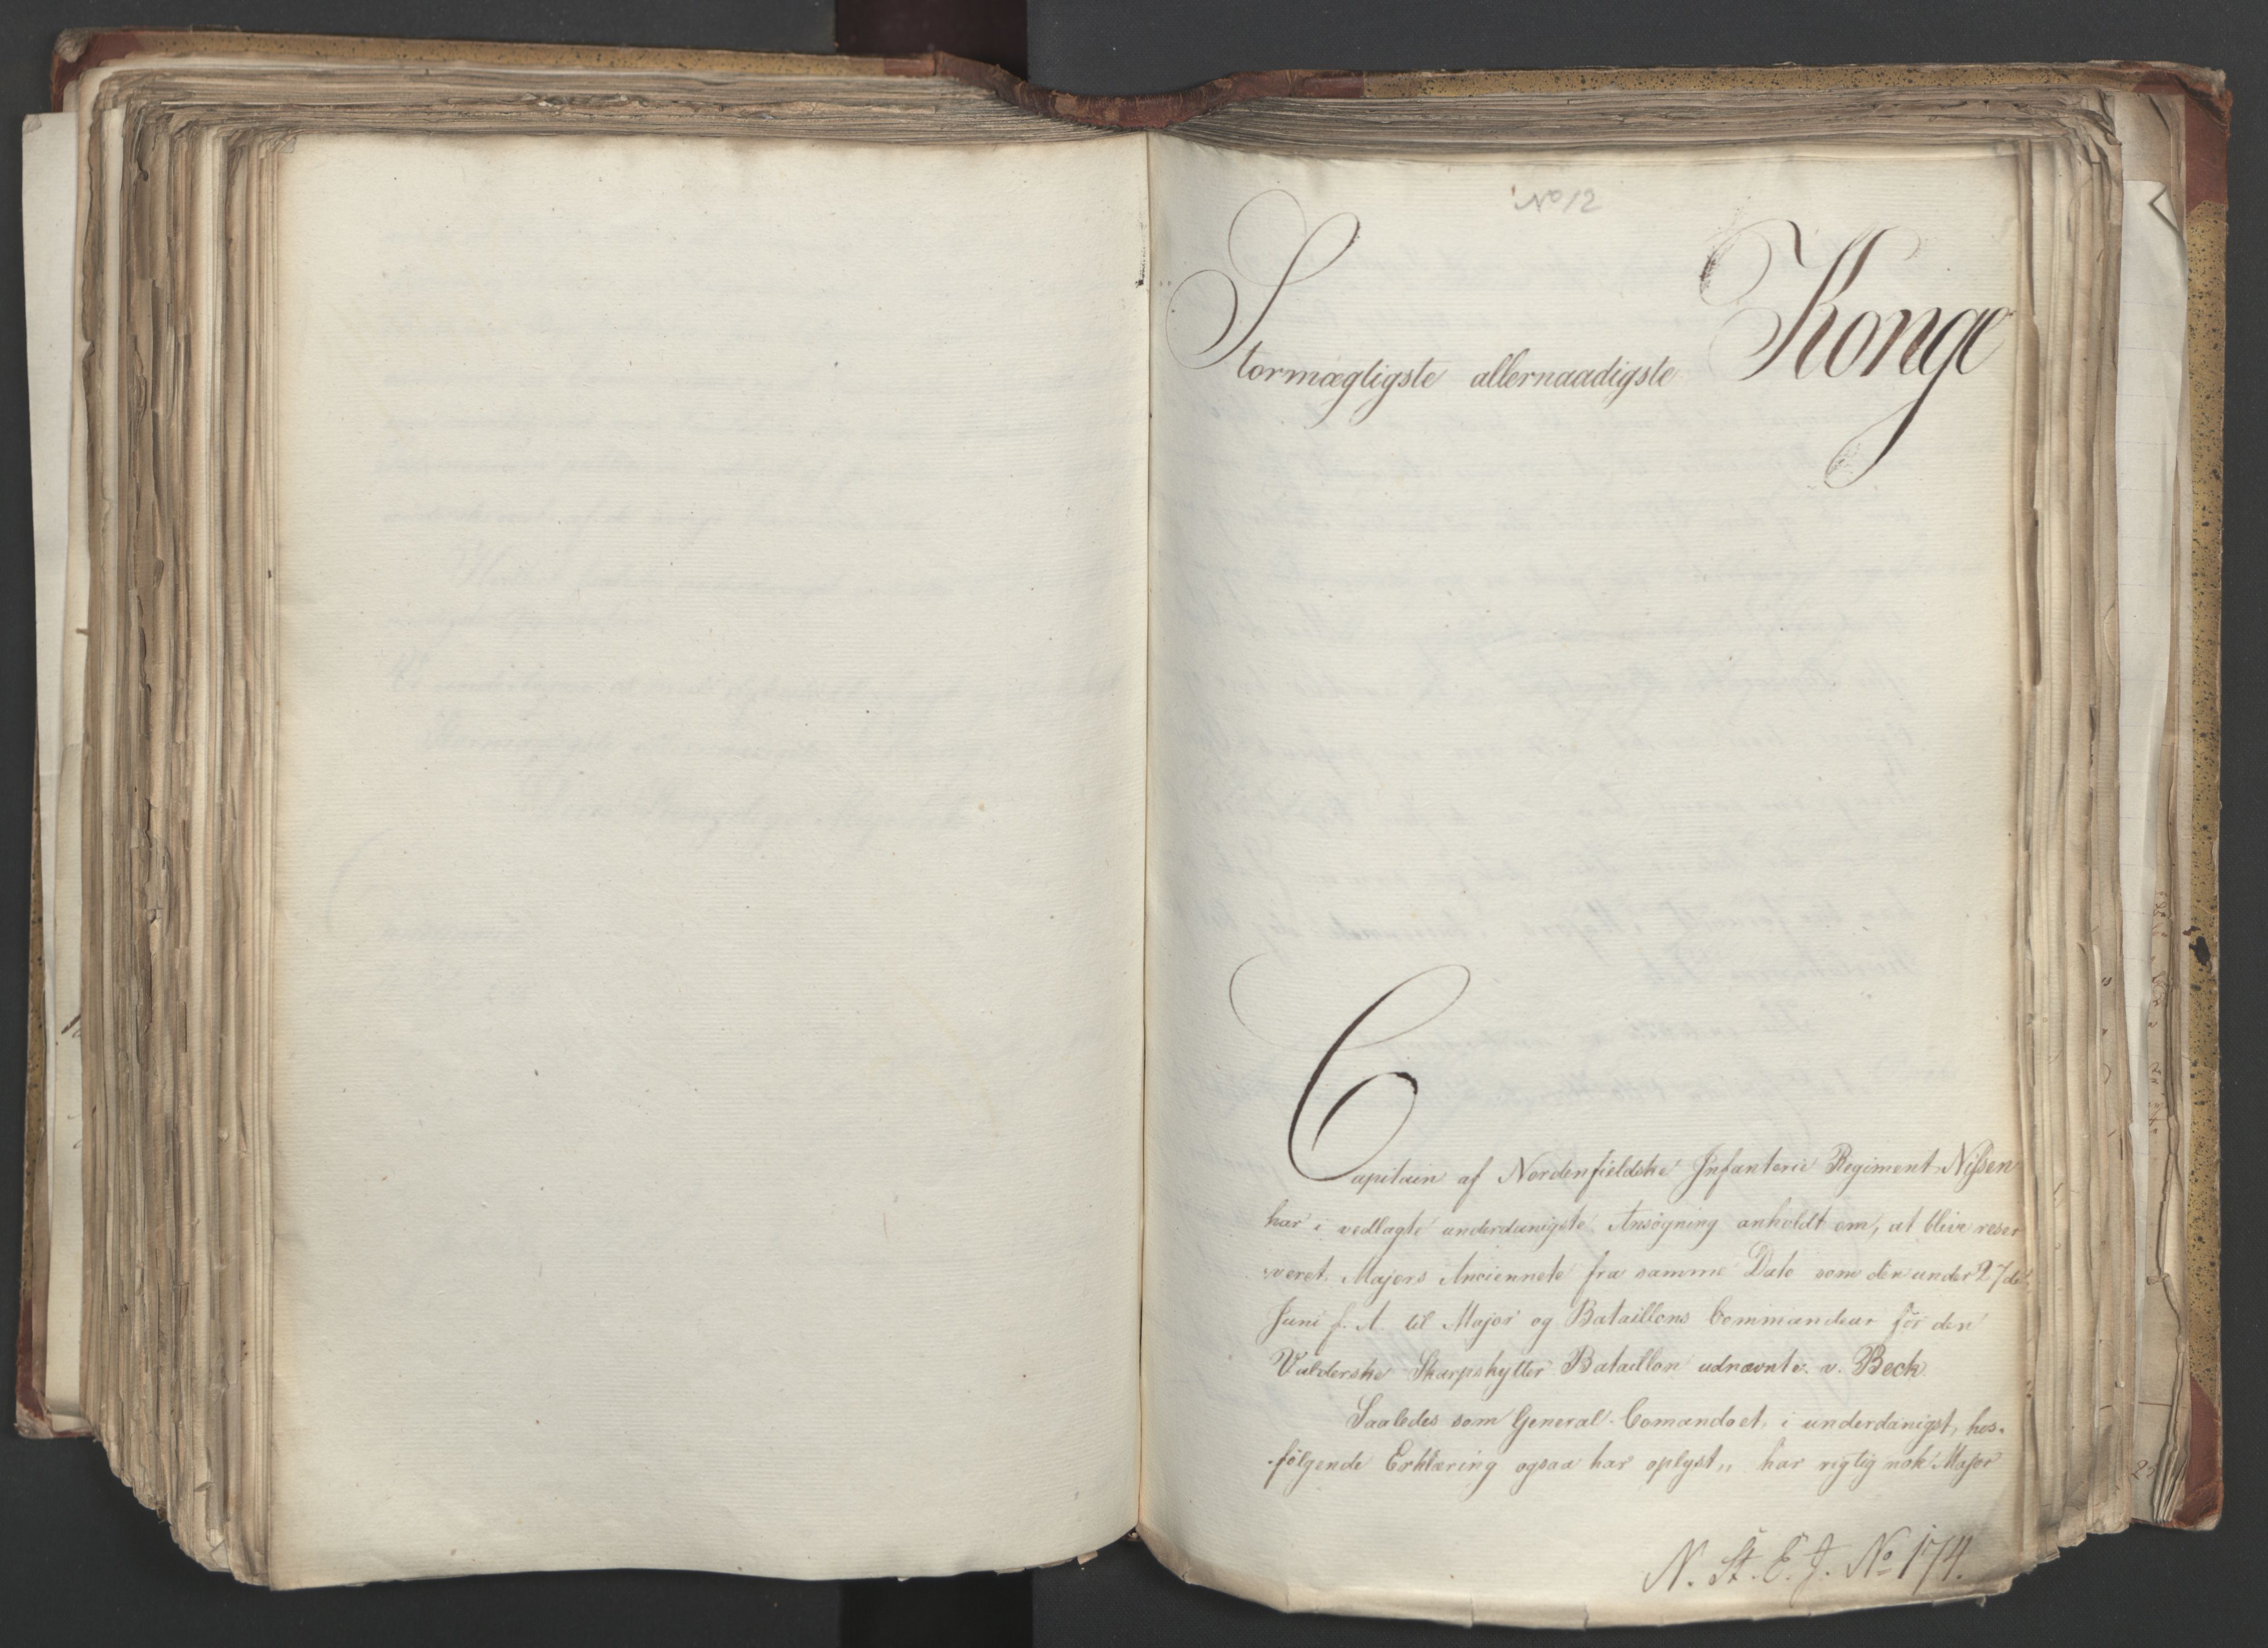 No 12
Stormægtigste allernaadigste Konge
Capitain af Nordenfieldske Infanterie Regiment Nissen
har i vedlagte underdanigste Ansøgning anholdt om, at blive reser
veret Majors Anciennete fra samme Dato som den under 27de
Juni f. A. til Major og Bataillons Commandeur for den
Valderske Skarpskytter Bataillon udnævnte v. Beck.
Saaledes som General-Comandoet, i underdanigst, hos-
følgende Erklæring ogsaa har oplyst,, har rigtig nok Major
N. St. E. J. No 174.